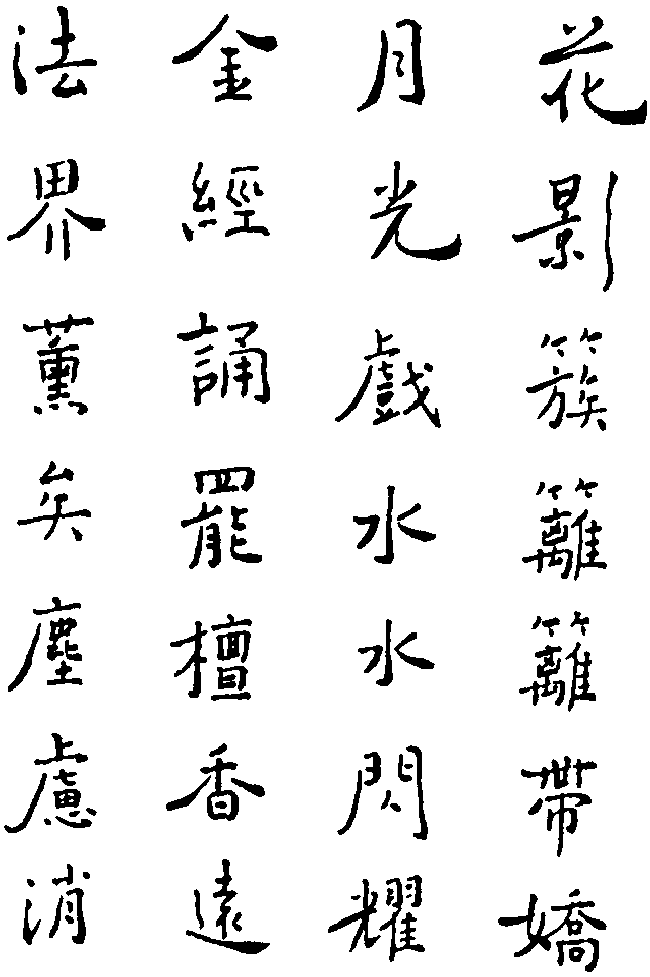 花影簇籬籬帶嬌
月光戲水水閃耀
金經誦罷檀香遠
法界薰矣塵慮消